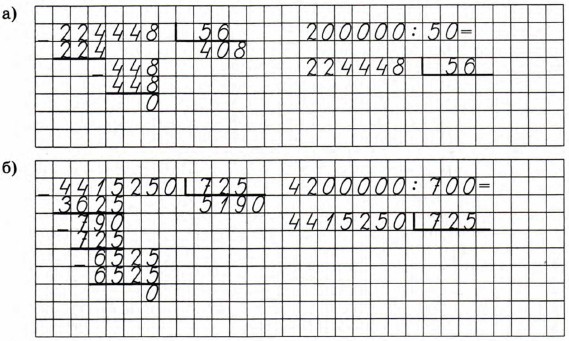 а)
224448 56 200000 : 50 =
224 408
448 224448 56
448
0
б)
4415250 725 4200000 : 700 =
3625 5190
790 4415250 725
725
6525
6525
0